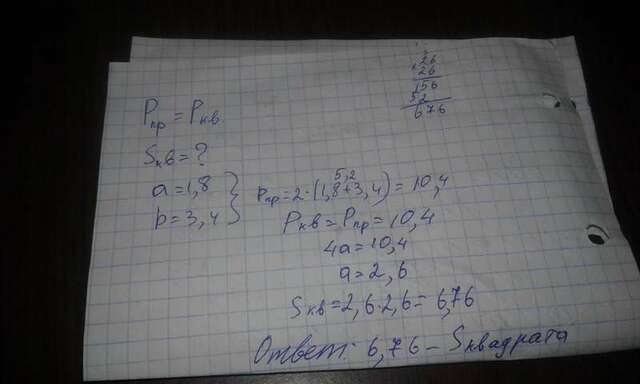 26
26
156
52
676
Pпр = Pкв
Sкв = ?
a = 1,8
b = 3,4
5,2
Pпр = 2·(1,8+3,4) = 10,4
Pкв = Pпр = 10,4
4a = 10,4
a = 2,6
Sкв = 2,6·2,6 = 6,76
Ответ: 6,76 – Sквадрата